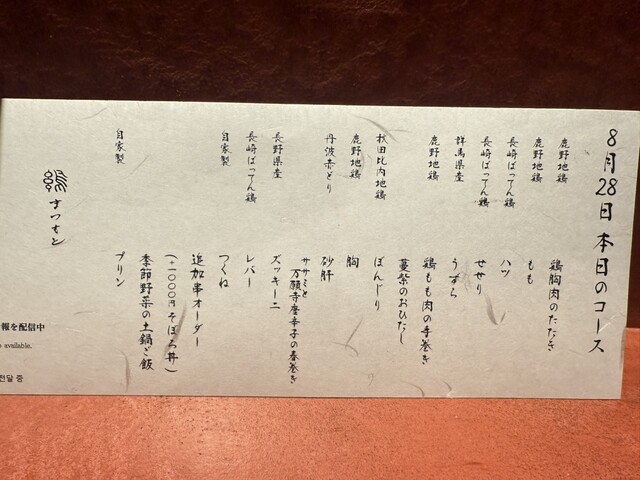 8月28日 本日のコース
鹿野地鶏 鶏胸肉のたたき
鹿野地鶏 もも
長崎ばってん鶏 ハツ
長崎ばってん鶏 せせり
群馬県産 うずら
鹿野地鶏 鶏もも肉の手巻き
蔓紫のおひたし
秋田比内地鶏 ぼんじり
鹿野地鶏 胸
丹波赤どり 砂肝
ササミと万願寺唐辛子の春巻き
長野県産 ズッキーニ
長崎ばってん鶏 レバー
自家製 つくね
追加串オーダー
(+1000円そぼろ丼)
季節野菜の土鍋ご飯
自家製 プリン
報を配信中
available.
전달 중